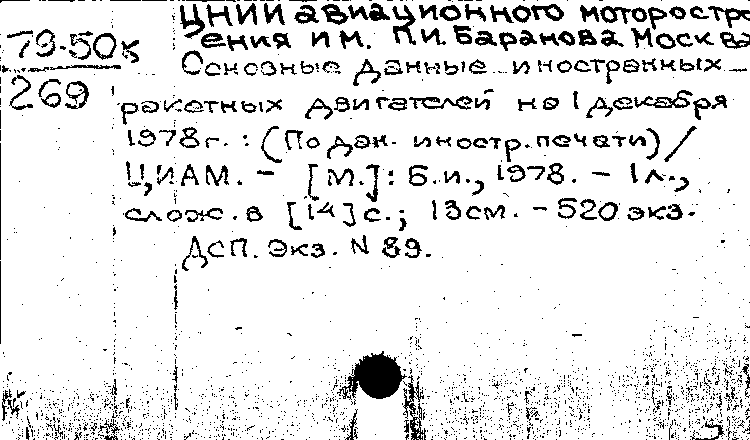 ЦНИИ авиационного моторостро
79-50к
ения им. П.И. Баранова Москва
Основные данные иностранных
269
ракетных двигателей на 1 декабря
1978г. : (По дан. иностр. печати) /
ЦИАМ. - [М.]: Б.и., 1978. - 1л.,
слож. в [14] с.; 13см. - 520 экз.
ДСП. Экз. N 89.